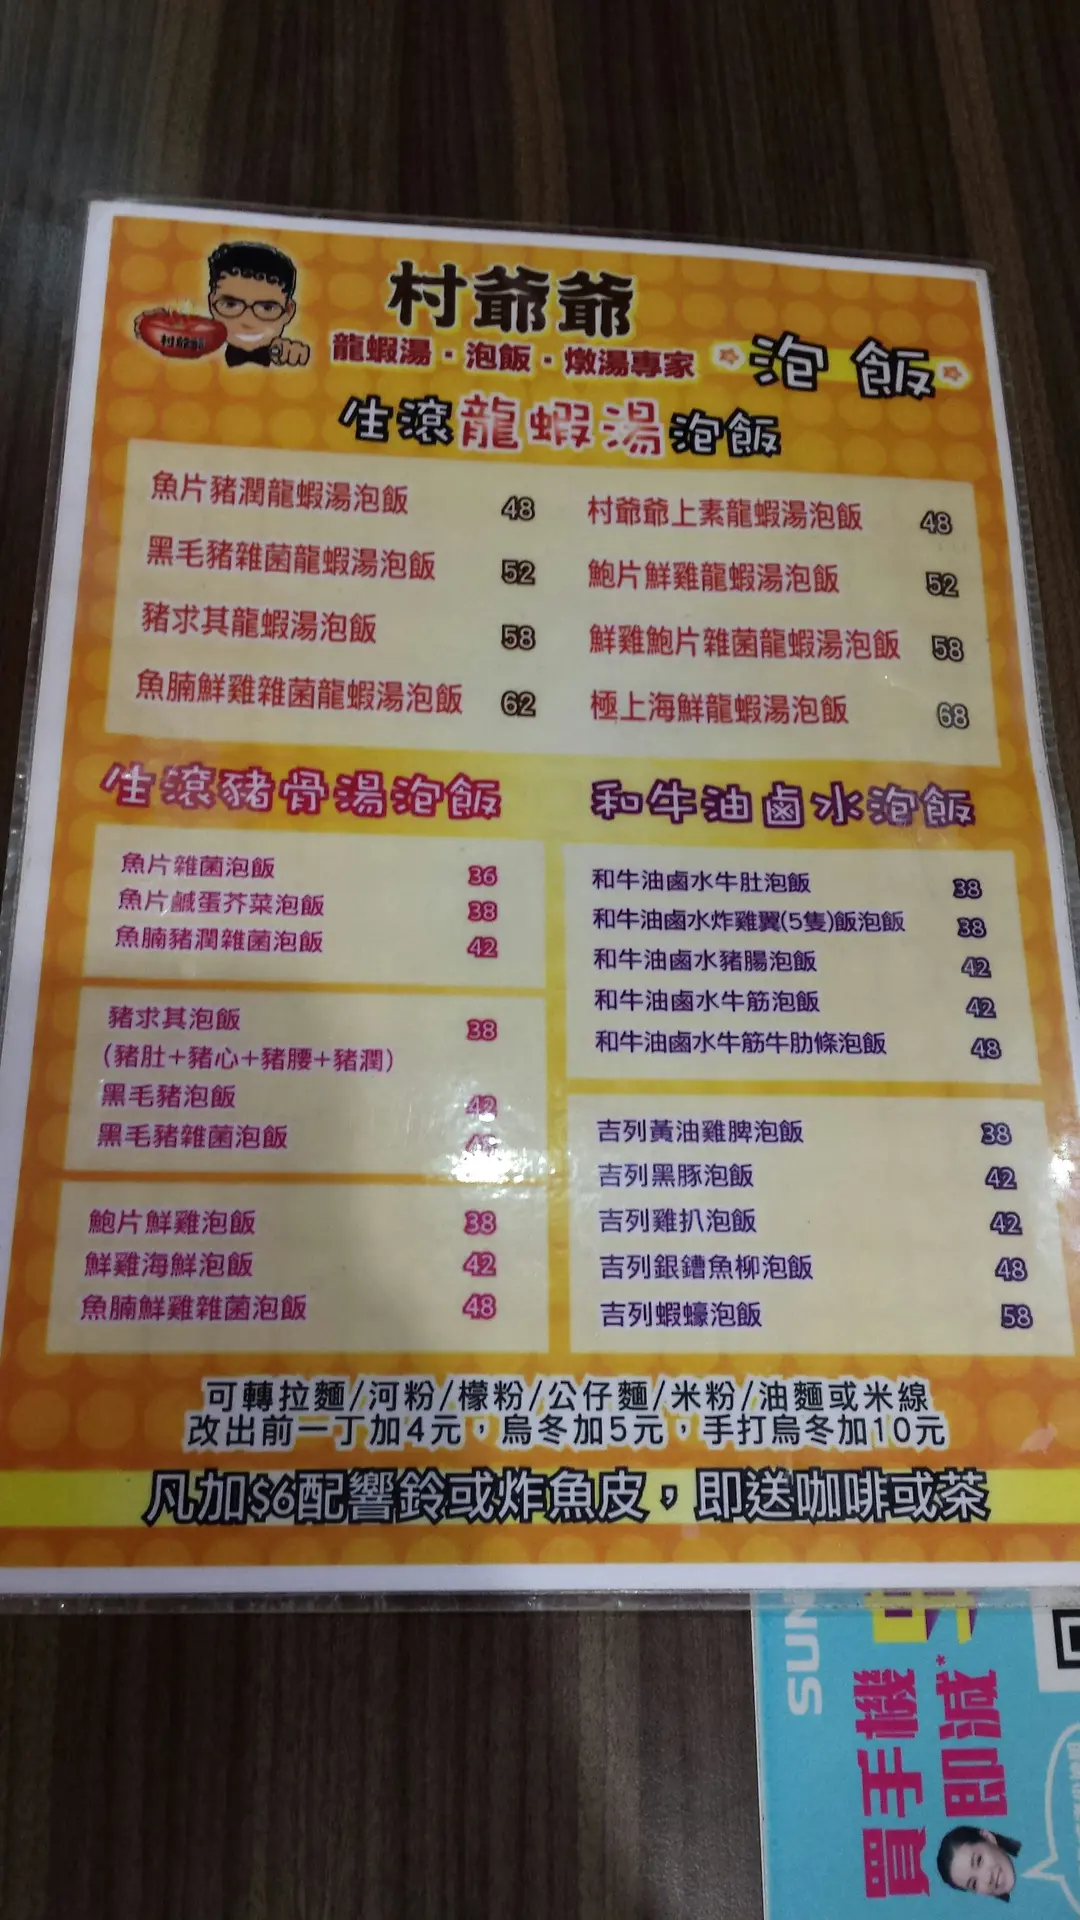 村爺爺
村爺爺
龍蝦湯·泡飯·燉湯專家
泡飯
生滾龍蝦湯泡飯
魚片豬潤龍蝦湯泡飯 48
黑毛豬雜菌龍蝦湯泡飯 52
豬求其龍蝦湯泡飯 58
魚腩鮮雞雜菌龍蝦湯泡飯 62
村爺爺上素龍蝦湯泡飯 48
鮑片鮮雞龍蝦湯泡飯 52
鮮雞鮑片雜菌龍蝦湯泡飯 58
極上海鮮龍蝦湯泡飯 68
生滾豬骨湯泡飯
魚片雜菌泡飯 36
魚片鹹蛋芥菜泡飯 38
魚腩豬潤雜菌泡飯 42
豬求其泡飯 38
(豬肚+豬心+豬腰+豬潤)
黑毛豬泡飯 42
黑毛豬雜菌泡飯
鮑片鮮雞泡飯 38
鮮雞海鮮泡飯 42
魚腩鮮雞雜菌泡飯 48
和牛油鹵水泡飯
和牛油鹵水牛肚泡飯 38
和牛油鹵水炸雞翼(5隻)飯泡飯 38
和牛油鹵水豬腸泡飯 42
和牛油鹵水牛筋泡飯 42
和牛油鹵水牛筋牛肋條泡飯 48
吉列黃油雞脾泡飯 38
吉列黑豚泡飯 42
吉列雞扒泡飯 42
吉列銀鱈魚柳泡飯 48
吉列蝦蠔泡飯 58
可轉拉麵/河粉/檬粉/公仔麵/米粉/油麵或米線
改出前一丁加4元，烏冬加5元，手打烏冬加10元
凡加$6配響鈴或炸魚皮，即送咖啡或茶
SUN
買手機
即減*